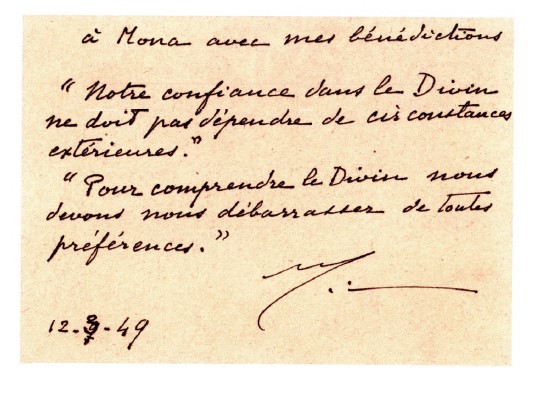 à Mona avec mes bénédictions
“ Notre confiance dans le Divin
ne doit pas dépendre de circonstances
extérieures.”
“ Pour comprendre le Divin nous
devons nous débarrasser de toutes
préférences.”
12- -49